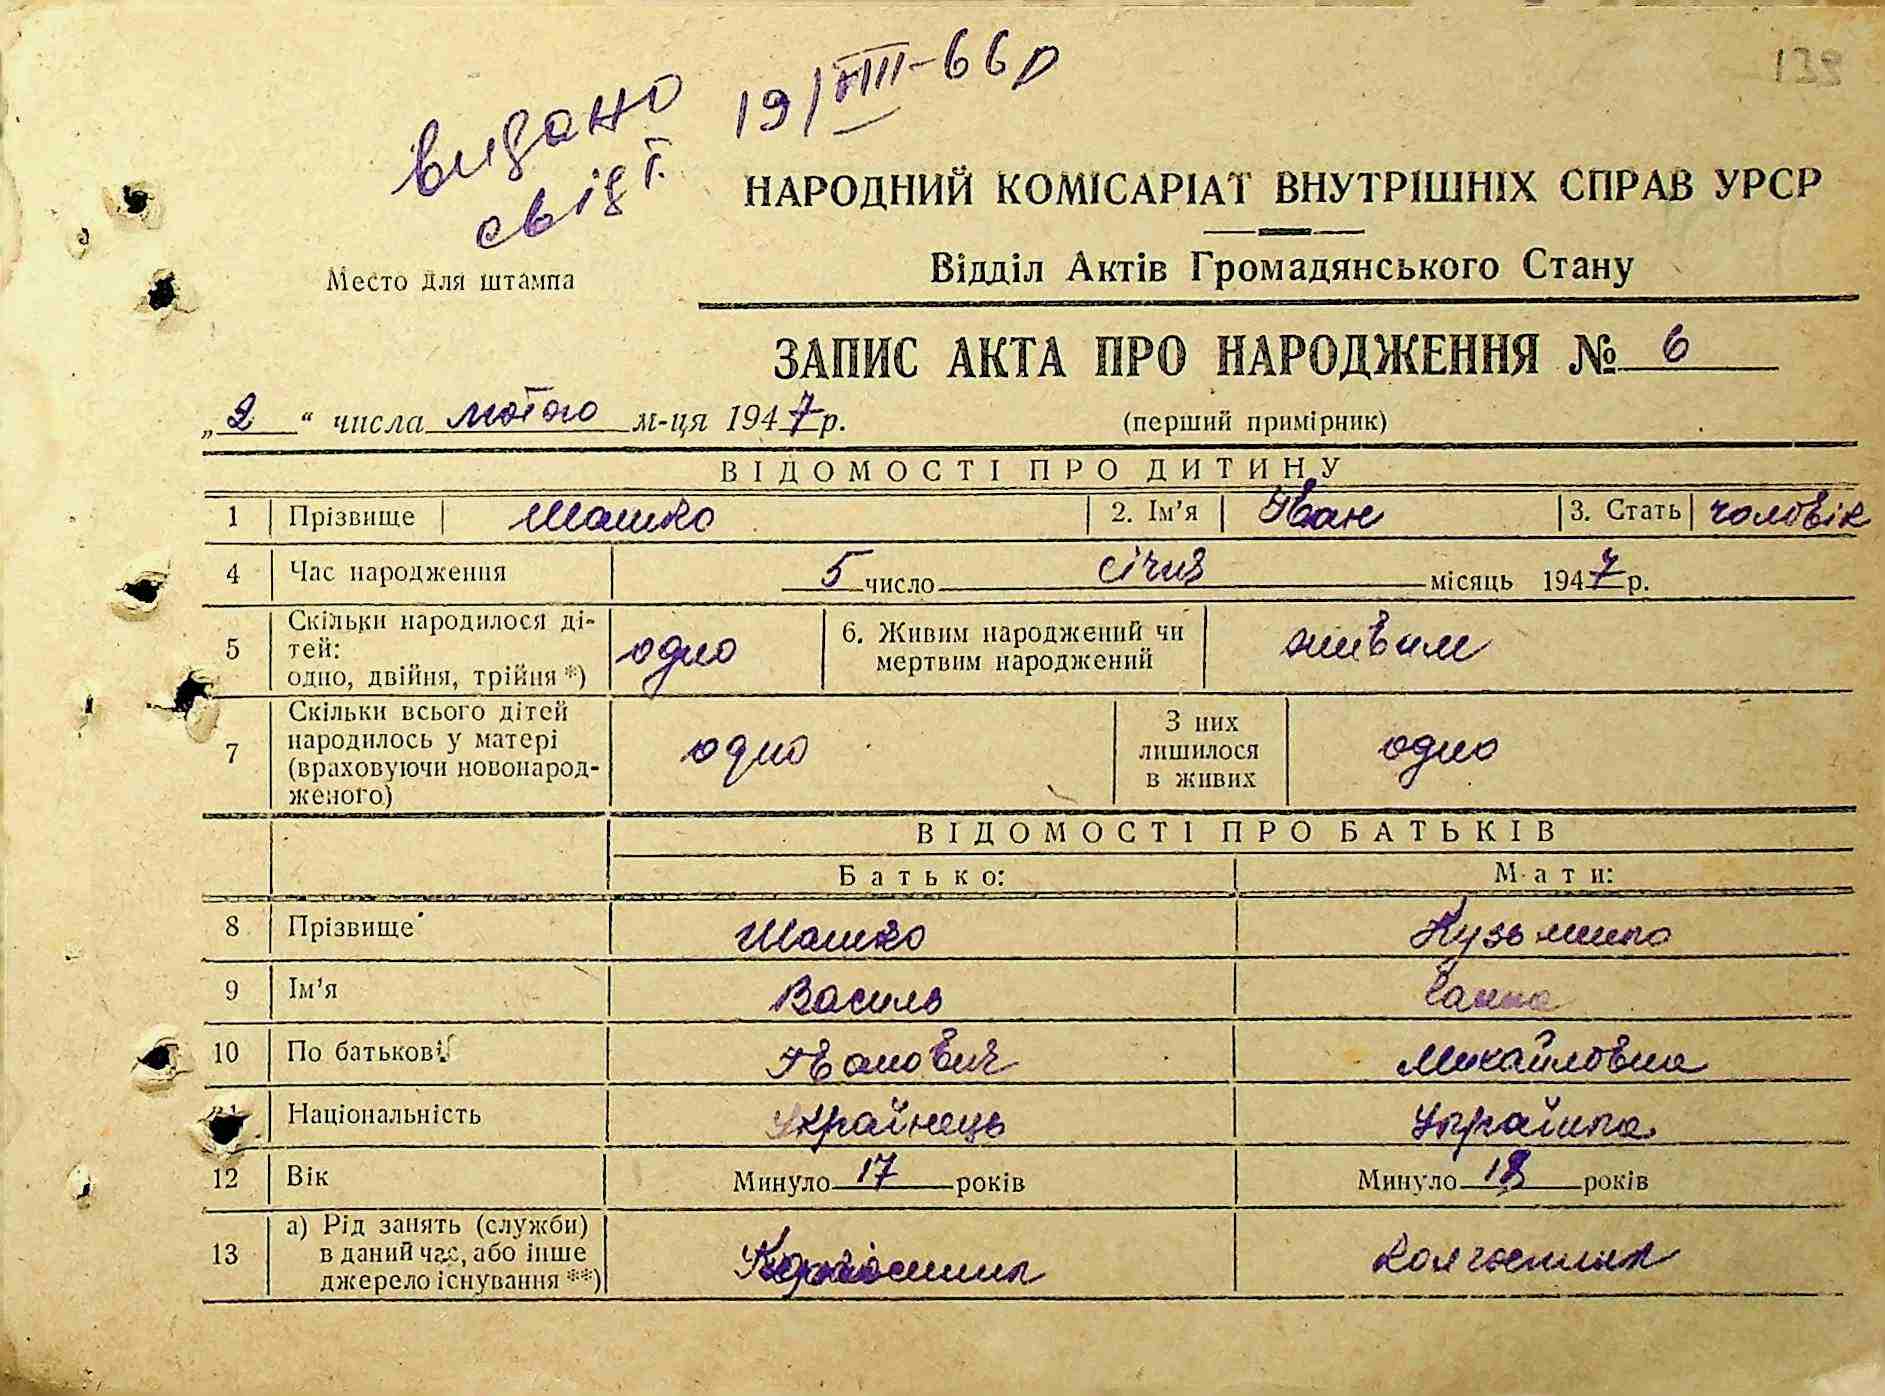 139
видано 19/VIII-66 р
свідт.
НАРОДНИЙ КОМІСАРІАТ ВНУТРІШНІХ СПРАВ УРСР
Відділ Актів Громадянського Стану
Место для штампа
ЗАПИС АКТА ПРО НАРОДЖЕННЯ № 6
„2“ числа лютого м-ця 1947 р.
(перший примірник)
ВІДОМОСТІ ПРО ДИТИНУ
1 Прізвище Шашко 2. Ім’я Іван 3. Стать чоловік
4 Час народження 5 число січня місяць 1947 р.
5 Скільки народилося ді-
тей:
одно, двійня, трійня *) одно 6. Живим народжений чи
мертвим народжений живим
7 Скільки всього дітей
народилось у матері
(враховуючи новонарод-
женого) одно З них
лишилося
в живих одно
ВІДОМОСТІ ПРО БАТЬКІВ
Батько: Мати:
8 Прізвище Шашко Кузьмина
9 Ім’я Василь Ганна
10 По батькові Іванович Михайловна
11 Національність Українець Українка
12 Вік Минуло 17 років Минуло 18 років
13 а) Рід занять (служби)
в даний час, або інше
джерело існування **) колгоспник